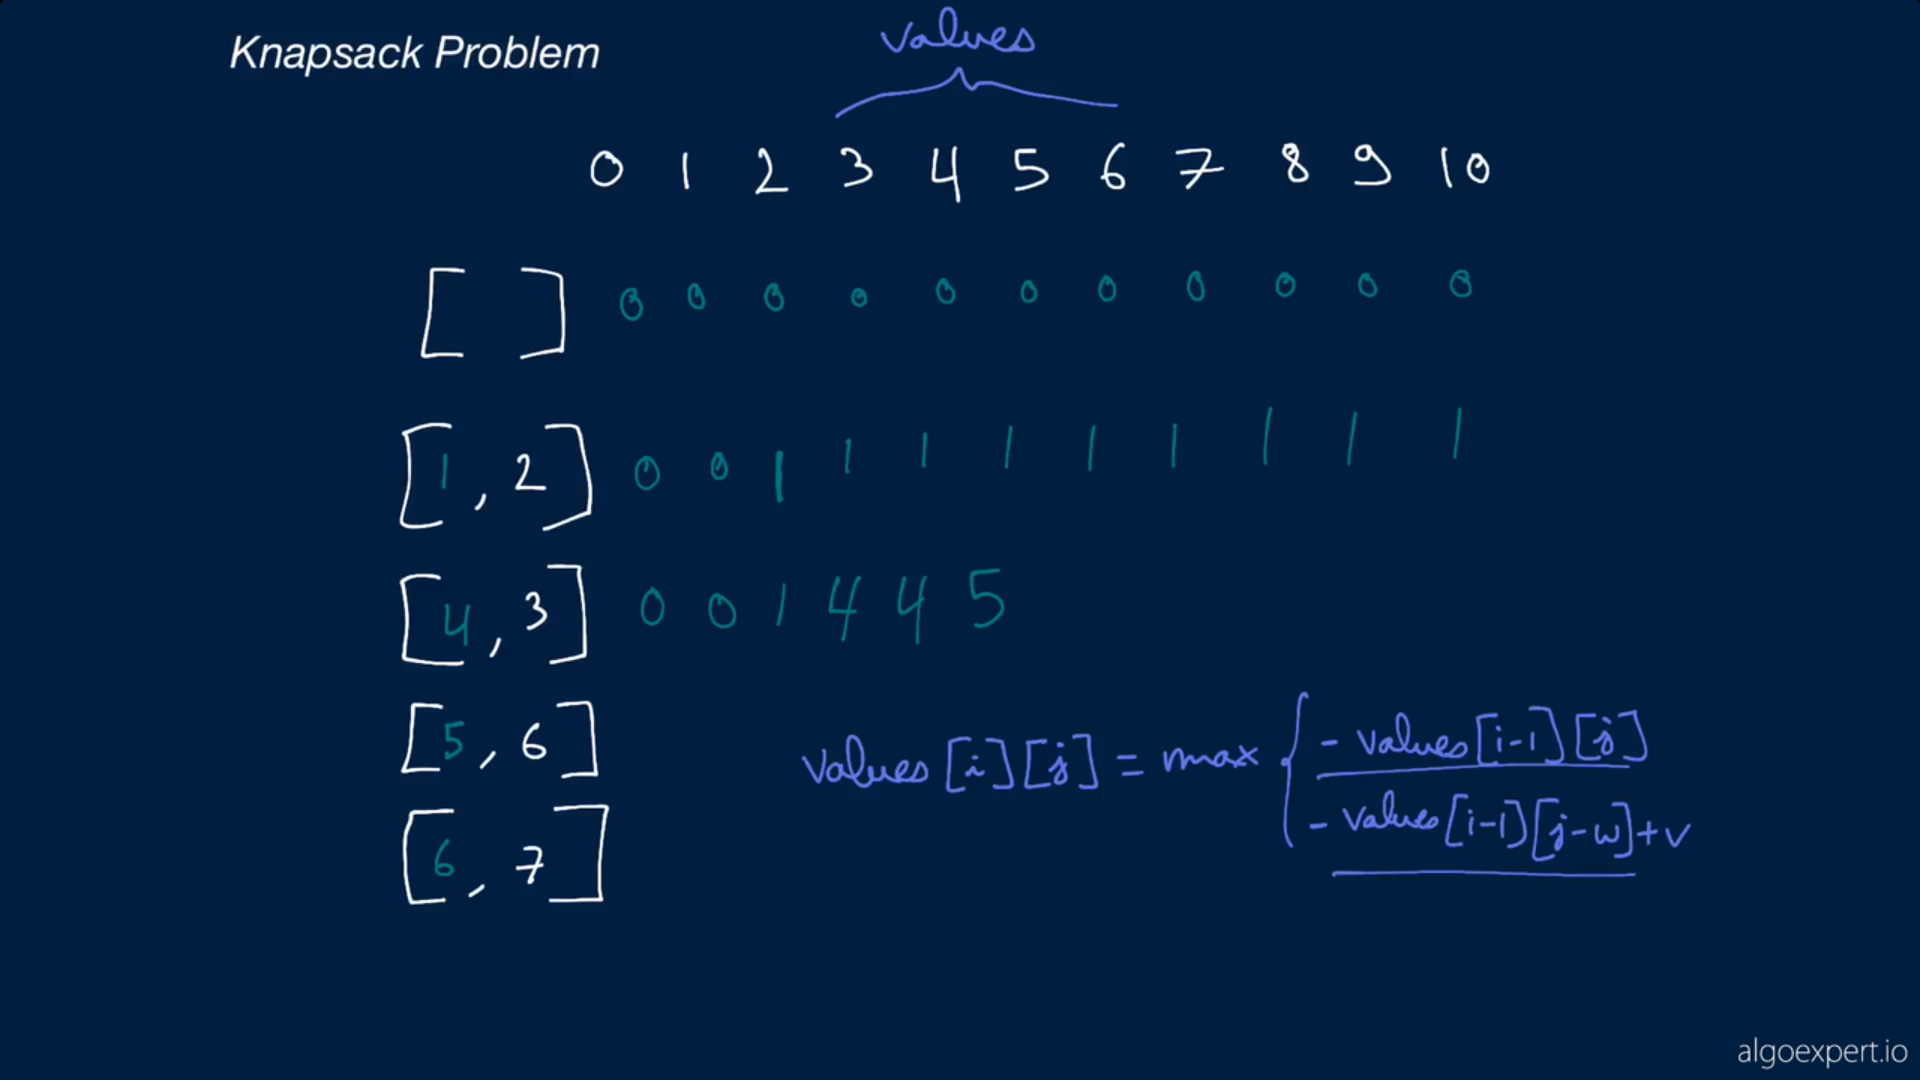 Knapsack Problem
values
0 1 2 3 4 5 6 7 8 9 10
[ ] 0 0 0 0 0 0 0 0 0 0 0
[1, 2] 0 0 1 1 1 1 1 1 1 1 1
[4, 3] 0 0 1 4 4 5
[5, 6]
[6, 7]
values[i][j] = max { - values[i-1][j]
- values[i-1][j-w]+v
algoexpert.io